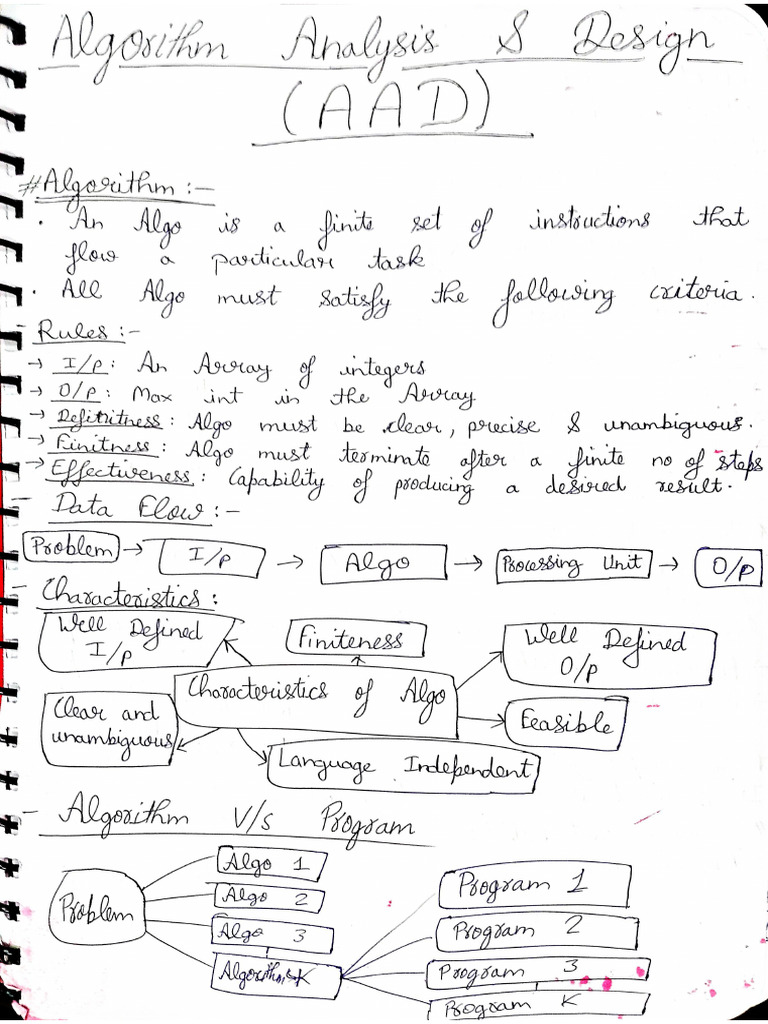 Algorithm Analysis & Design
(AAD)
#Algorithm :-
· An Algo is a finite set of instructions that
flow a particular task
· All Algo must satisfy the following criteria.
- Rules :-
→ I/p : An Array of integers
→ O/p : Max int in the Array
→ Definitness : Algo must be clear, precise & unambiguous.
→ Finitness : Algo must terminate after a finite no of steps
→ Effectiveness : Capability of producing a desired result.
- Data Flow :-
Problem → I/p → Algo → Processing Unit → O/p
- Characteristics :
Well Defined
I/p
Finiteness
Well Defined
O/p
Characteristics of Algo
Clear and
unambiguous
Feasible
Language Independent
- Algorithm V/s Program
Problem
Algo 1
Algo 2
Algo 3
Algorithm K
Program 1
Program 2
Program 3
Program K